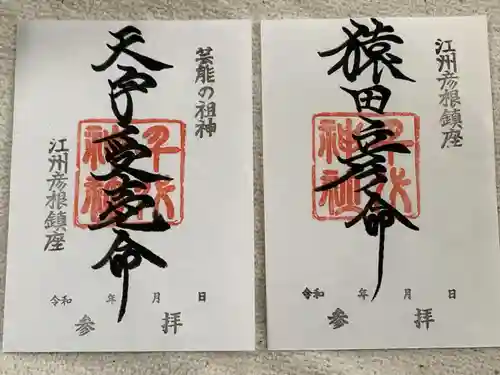 江州彦根鎮座
猿田彦命
千代神社
令和 年 月 日
参拝
芸能の祖神
天宇受売命
江州彦根鎮座
千代神社
令和 年 月 日
参拝